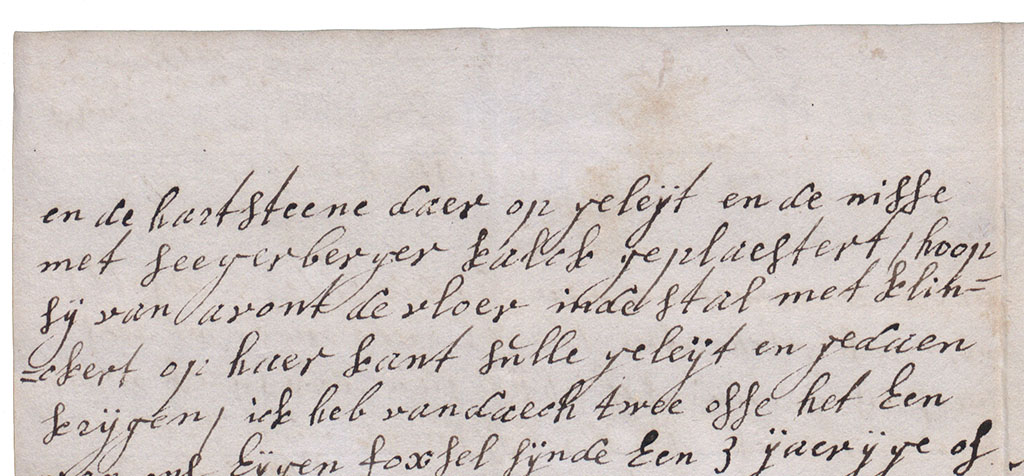 en de hartsteene daer op geleÿt en de nisse
met seegerberger kalck geplaestert, hoop
sÿ van avont de vloer inde stal met klin=
=ckert op haer kant sulle geleÿt en gedaen
krÿgen, ick heb vandaech twee osse het Een
Eÿgen foxsel sÿnde Een 3 ÿaerÿge os